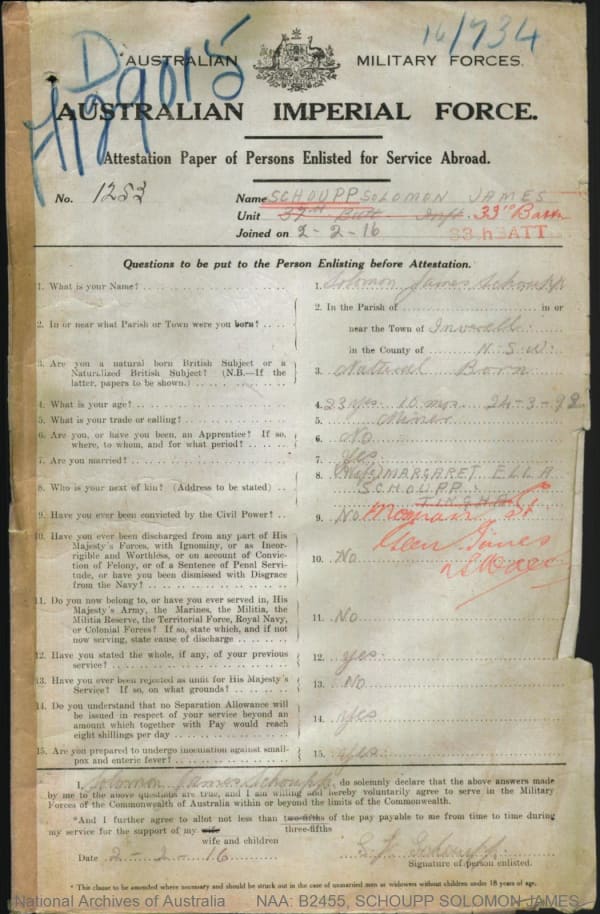 D
16/734
AUSTRALIAN MILITARY FORCES.
AUSTRALIAN IMPERIAL FORCE.
Attestation Paper of Persons Enlisted for Service Abroad.
No. 1253 Name SCHOUPP SOLOMON JAMES
Unit 37th Batt Inft. 33rd Battn
Joined on 2-2-16 33rd BATT
Questions to be put to the Person Enlisting before Attestation.
1. What is your Name? 1. Solomon James Schoupp
2. In or near what Parish or Town were you born? 2. In the Parish of in or
near the Town of Inverell
in the County of N.S.W.
3. Are you a natural born British Subject or a
Naturalized British Subject? (N.B.—If the
latter, papers to be shown.) 3. Natural Born
4. What is your age? 4. 23 yrs 10 mos 24-3-92
5. What is your trade or calling? 5. Miner
6. Are you, or have you been, an Apprentice? If so,
where, to whom, and for what period? 6. No
7. Are you married? 7. yes
8. Who is your next of kin? (Address to be stated) 8. (Wife) MARGARET ELLA
SCHOUPP
TINGHA
Glen Innes
9. Have you ever been convicted by the Civil Power? 9. No
10. Have you ever been discharged from any part of His
Majesty's Forces, with Ignominy, or as Incor-
rigible and Worthless, or on account of Convic-
tion of Felony, or of a Sentence of Penal Servi-
tude, or have you been dismissed with Disgrace
from the Navy? 10. No
11. Do you now belong to, or have you ever served in, His
Majesty's Army, the Marines, the Militia, the
Militia Reserve, the Territorial Force, Royal Navy,
or Colonial Forces? If so, state which, and if not
now serving, state cause of discharge 11. No
12. Have you stated the whole, if any, of your previous
service? 12. yes
13. Have you ever been rejected as unfit for His Majesty's
Service? If so, on what grounds? 13. No
14. Do you understand that no Separation Allowance will
be issued in respect of your service beyond an
amount which together with Pay would reach
eight shillings per day 14. yes
15. Are you prepared to undergo inoculation against small-
pox and enteric fever? 15. yes
I, Solomon James Schoupp, do solemnly declare that the above answers made
by me to the above questions are true, and I am willing and hereby voluntarily agree to serve in the Military
Forces of the Commonwealth of Australia within or beyond the limits of the Commonwealth.
*And I further agree to allot not less than two-fifths of the pay payable to me from time to time during
three-fifths
my service for the support of my wife
wife and children
Date 2-2-16 S. J. Schoupp
Signature of person enlisted.
* This clause to be amended where necessary and should be struck out in the case of unmarried men or widowers without children under 18 years of age.
National Archives of Australia NAA: B2455, SCHOUPP SOLOMON JAMES